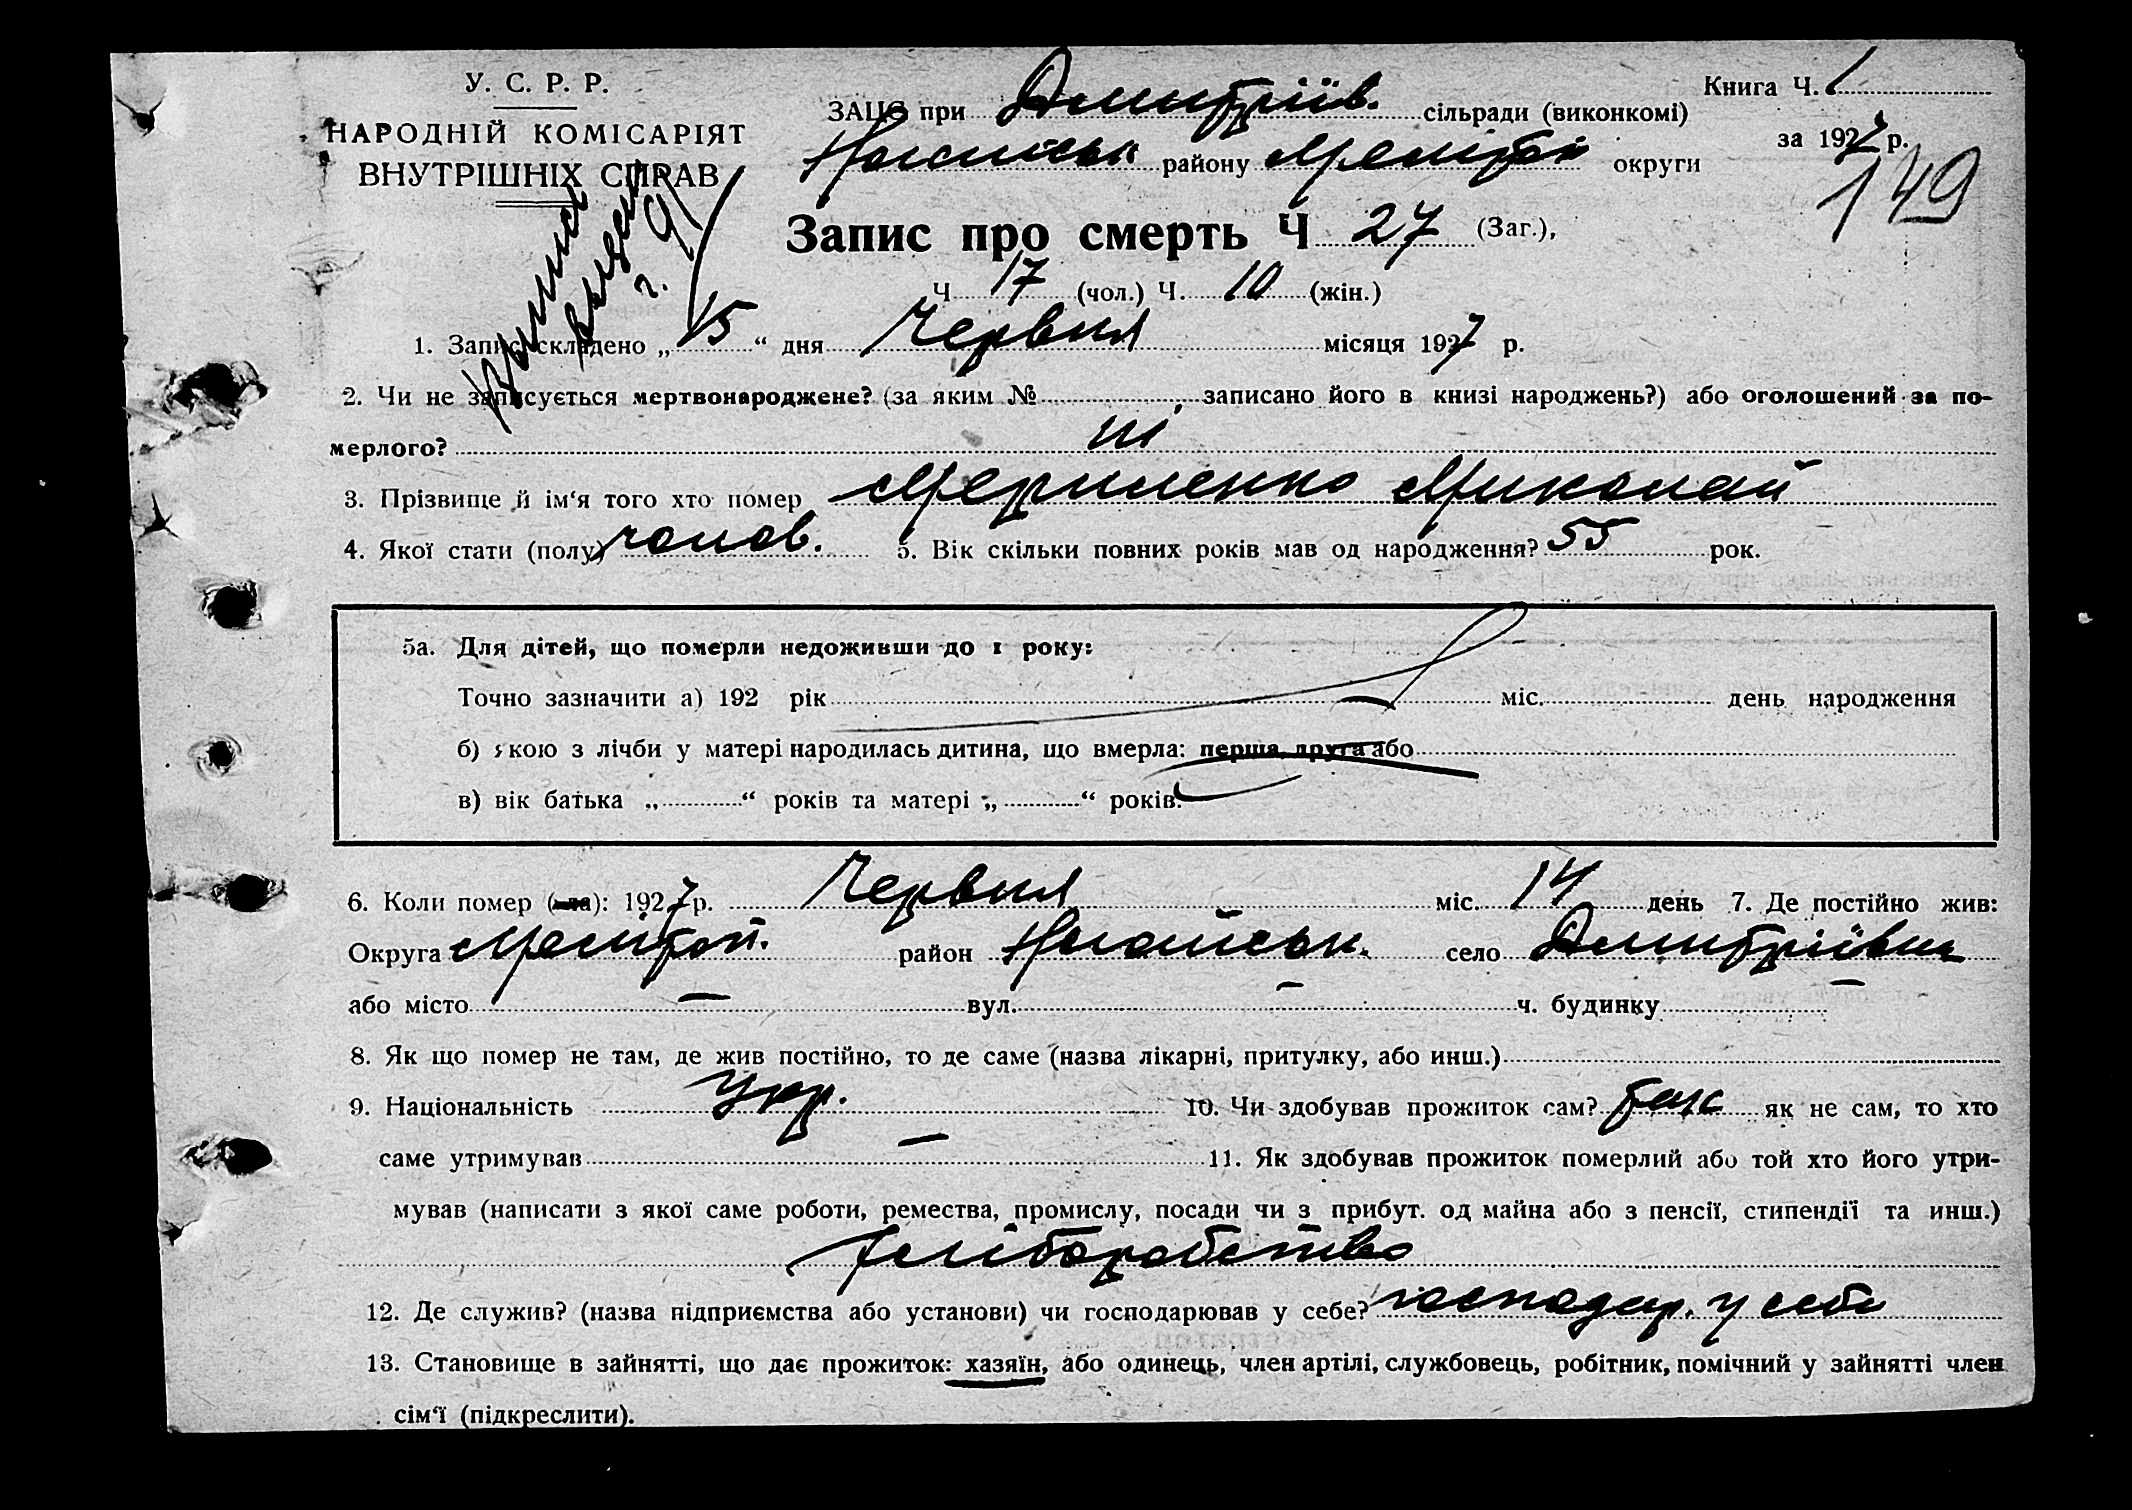 У. С. Р. Р.
НАРОДНІЙ КОМІСАРІЯТ
ВНУТРІШНІХ СПРАВ
Книга Ч. 1
за 1927 р.
149
ЗАЦС при Дмитріїв. сільради (виконкомі)
Ногайськ району Мелітоп округи
Запис про смерть Ч 27 (Заг.),
Ч 17 (чол.) Ч. 10 (жін.)
1. Запис складено „15“ дня Червня місяця 1927 р.
2. Чи не записується мертвонароджене? (за яким № , записано його в книзі народжень?) або оголошений за по-
мерлого? ні
3. Прізвище й ім‘я того хто помер Мериленко Миколай
4. Якої стати (полу) чолов. 5. Вік скільки повних років мав од народження? 55 рок.
5а. Для дітей, що померли недоживши до 1 року:
Точно зазначити а) 192 рік міс. день народження
б) якою з лічби у матері народилась дитина, що вмерла: перша, друга або
в) вік батька „ “ років та матері „ “ років.
6. Коли помер (-ла): 1927 р. Червня міс. 14 день 7. Де постійно жив:
Округа Мелітоп. район Ногайськ. село Дмитріївка
або місто — вул. — ч. будинку —
8. Як що помер не там, де жив постійно, то де саме (назва лікарні, притулку, або инш.)
9. Національність Укр. 10. Чи здобував прожиток сам? так як не сам, то хто
саме утримував — 11. Як здобував прожиток померлий або той хто його утри-
мував (написати з якої саме роботи, ремества, промислу, посади чи з прибут. од майна або з пенсії, стипендії та инш.)
хліборобство
12. Де служив? (назва підприємства або установи) чи господарював у себе? господар. у себе
13. Становище в зайнятті, що дає прожиток: хазяїн, або одинець, член артілі, службовець, робітник, помічний у зайнятті член
сім‘ї (підкреслити).